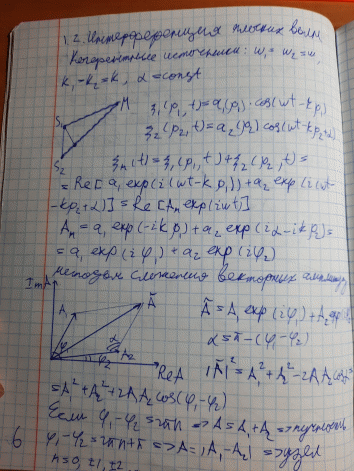 1.2. Интерференция плоских волн.
Когерентные источники: ω₁ = ω₂ = ω,
k₁ = k₂ = k, α = const
M
S₁
S₂
ξ₁(ρ₁,t) = a₁(ρ₁)·cos(ωt - kρ₁)
ξ₂(ρ₂,t) = a₂(ρ₂) cos(ωt - kρ₂+α)
(t) = ξ₁(ρ₁,t) + ξ₂(ρ₂,t) =
= Re[a₁ exp(i(ωt - kρ₁)) + a₂ exp(i(ωt -
- kρ₂+α)] = Re[Aₘ exp(iωt)]
Aₘ = a₁ exp(-ikρ₁) + a₂ exp(iα - ikρ₂) =
= a₁ exp(iφ₁) + a₂ exp(iφ₂)
сложения векторных
ImA
A₁
Ã
A₂
φ₂
ReA
Ã = A₁ exp(iφ₁) + A₂ exp
α = π - (φ₁ - φ₂)
|Ã|² = A₁² + A₂² - 2A₁A₂cos
= A₁² + A₂² + 2A₁A₂cos(φ₁ - φ₂)
Если φ₁ - φ₂ = 2πn ⇒ A = A₁ + A₂ ⇒ пучность
φ₁ - φ₂ = 2πn + π ⇒ A = |A₁ - A₂| ⇒ узел
n = 0, ±1, ±2
6